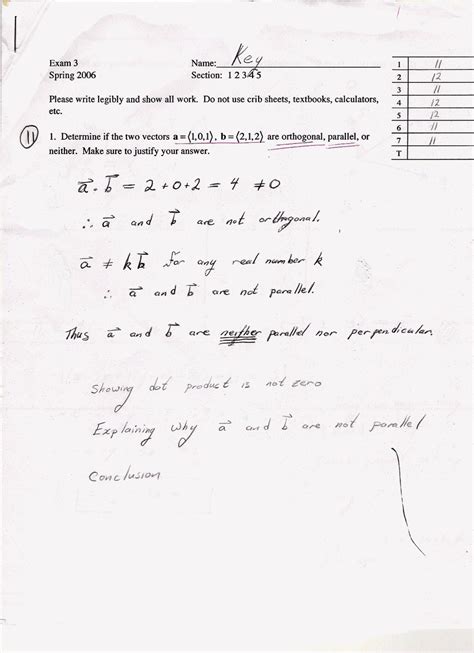 Exam 3 Name: Key
Spring 2006 Section: 1 2 3 4 5
Please write legibly and show all work. Do not use crib sheets, textbooks, calculators,
etc.
1 11
2 12
3 11
4 12
5 12
6 11
7 11
T
11
1. Determine if the two vectors a = ⟨1,0,1⟩, b = ⟨2,1,2⟩ are orthogonal, parallel, or
neither. Make sure to justify your answer.
a⃗ · b⃗ = 2 + 0 + 2 = 4 ≠ 0
∴ a⃗ and b⃗ are not orthogonal.
a⃗ ≠ k b⃗ for any real number k
∴ a⃗ and b⃗ are not parallel.
Thus a⃗ and b⃗ are neither parallel nor perpendicular.
Showing dot product is not zero
Explaining why a⃗ and b⃗ are not parallel
Conclusion